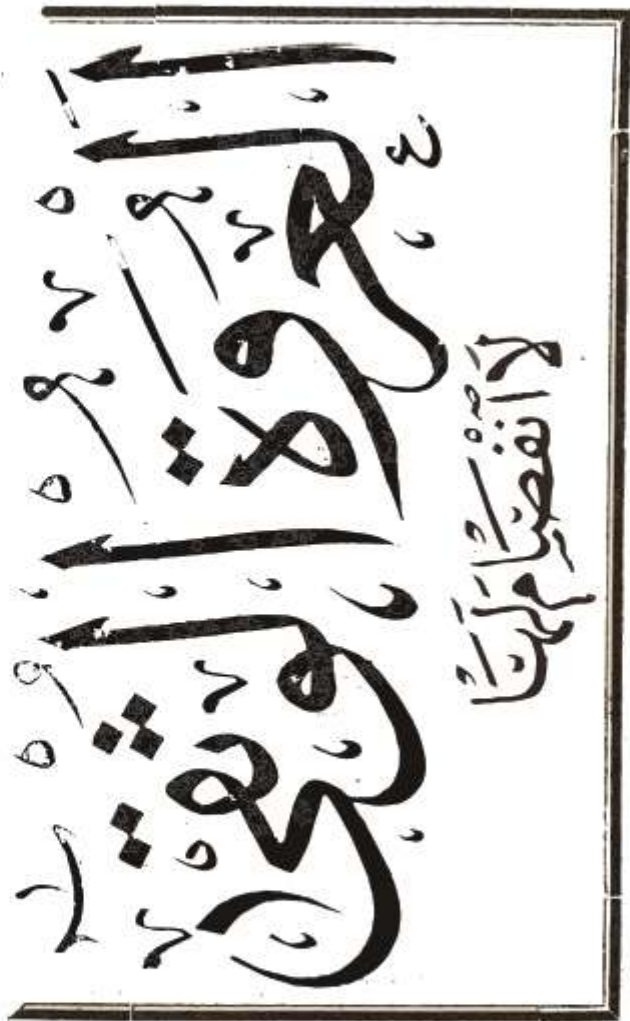 العُرْوَةُ الْوُثْقَى
لَا انْفِصَامَ لَهَا